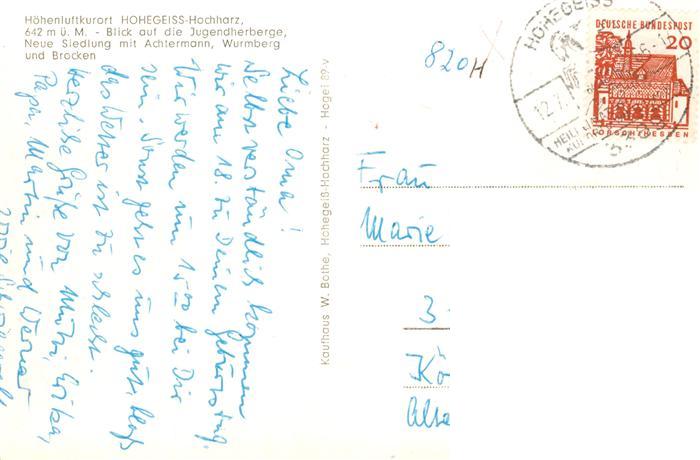 Höhenluftkurort HOHEGEISS-Hochharz,
642 m ü. M. - Blick auf die Jugendherberge,
Neue Siedlung mit Achtermann, Wurmberg
und Brocken
Liebe Oma!
Selbstverständlich kommen
wir am 18. zu Deinem Geburtstag.
Wir werden um 1500 bei Dir
sein. Sonst geht es uns gut, bloß
das Wetter ist zu schlecht.
Herzliche Grüße von Mutti, Erika,
Papa, Martin und Werner
Kaufhaus W. Bothe, Hohegeiß-Hochharz - Hagel 89-v
820H
HOHEGEISS
12.7.
DEUTSCHE BUNDESPOST
20
LORSCH/HESSEN
Frau
Marie
3
Kö
Alte